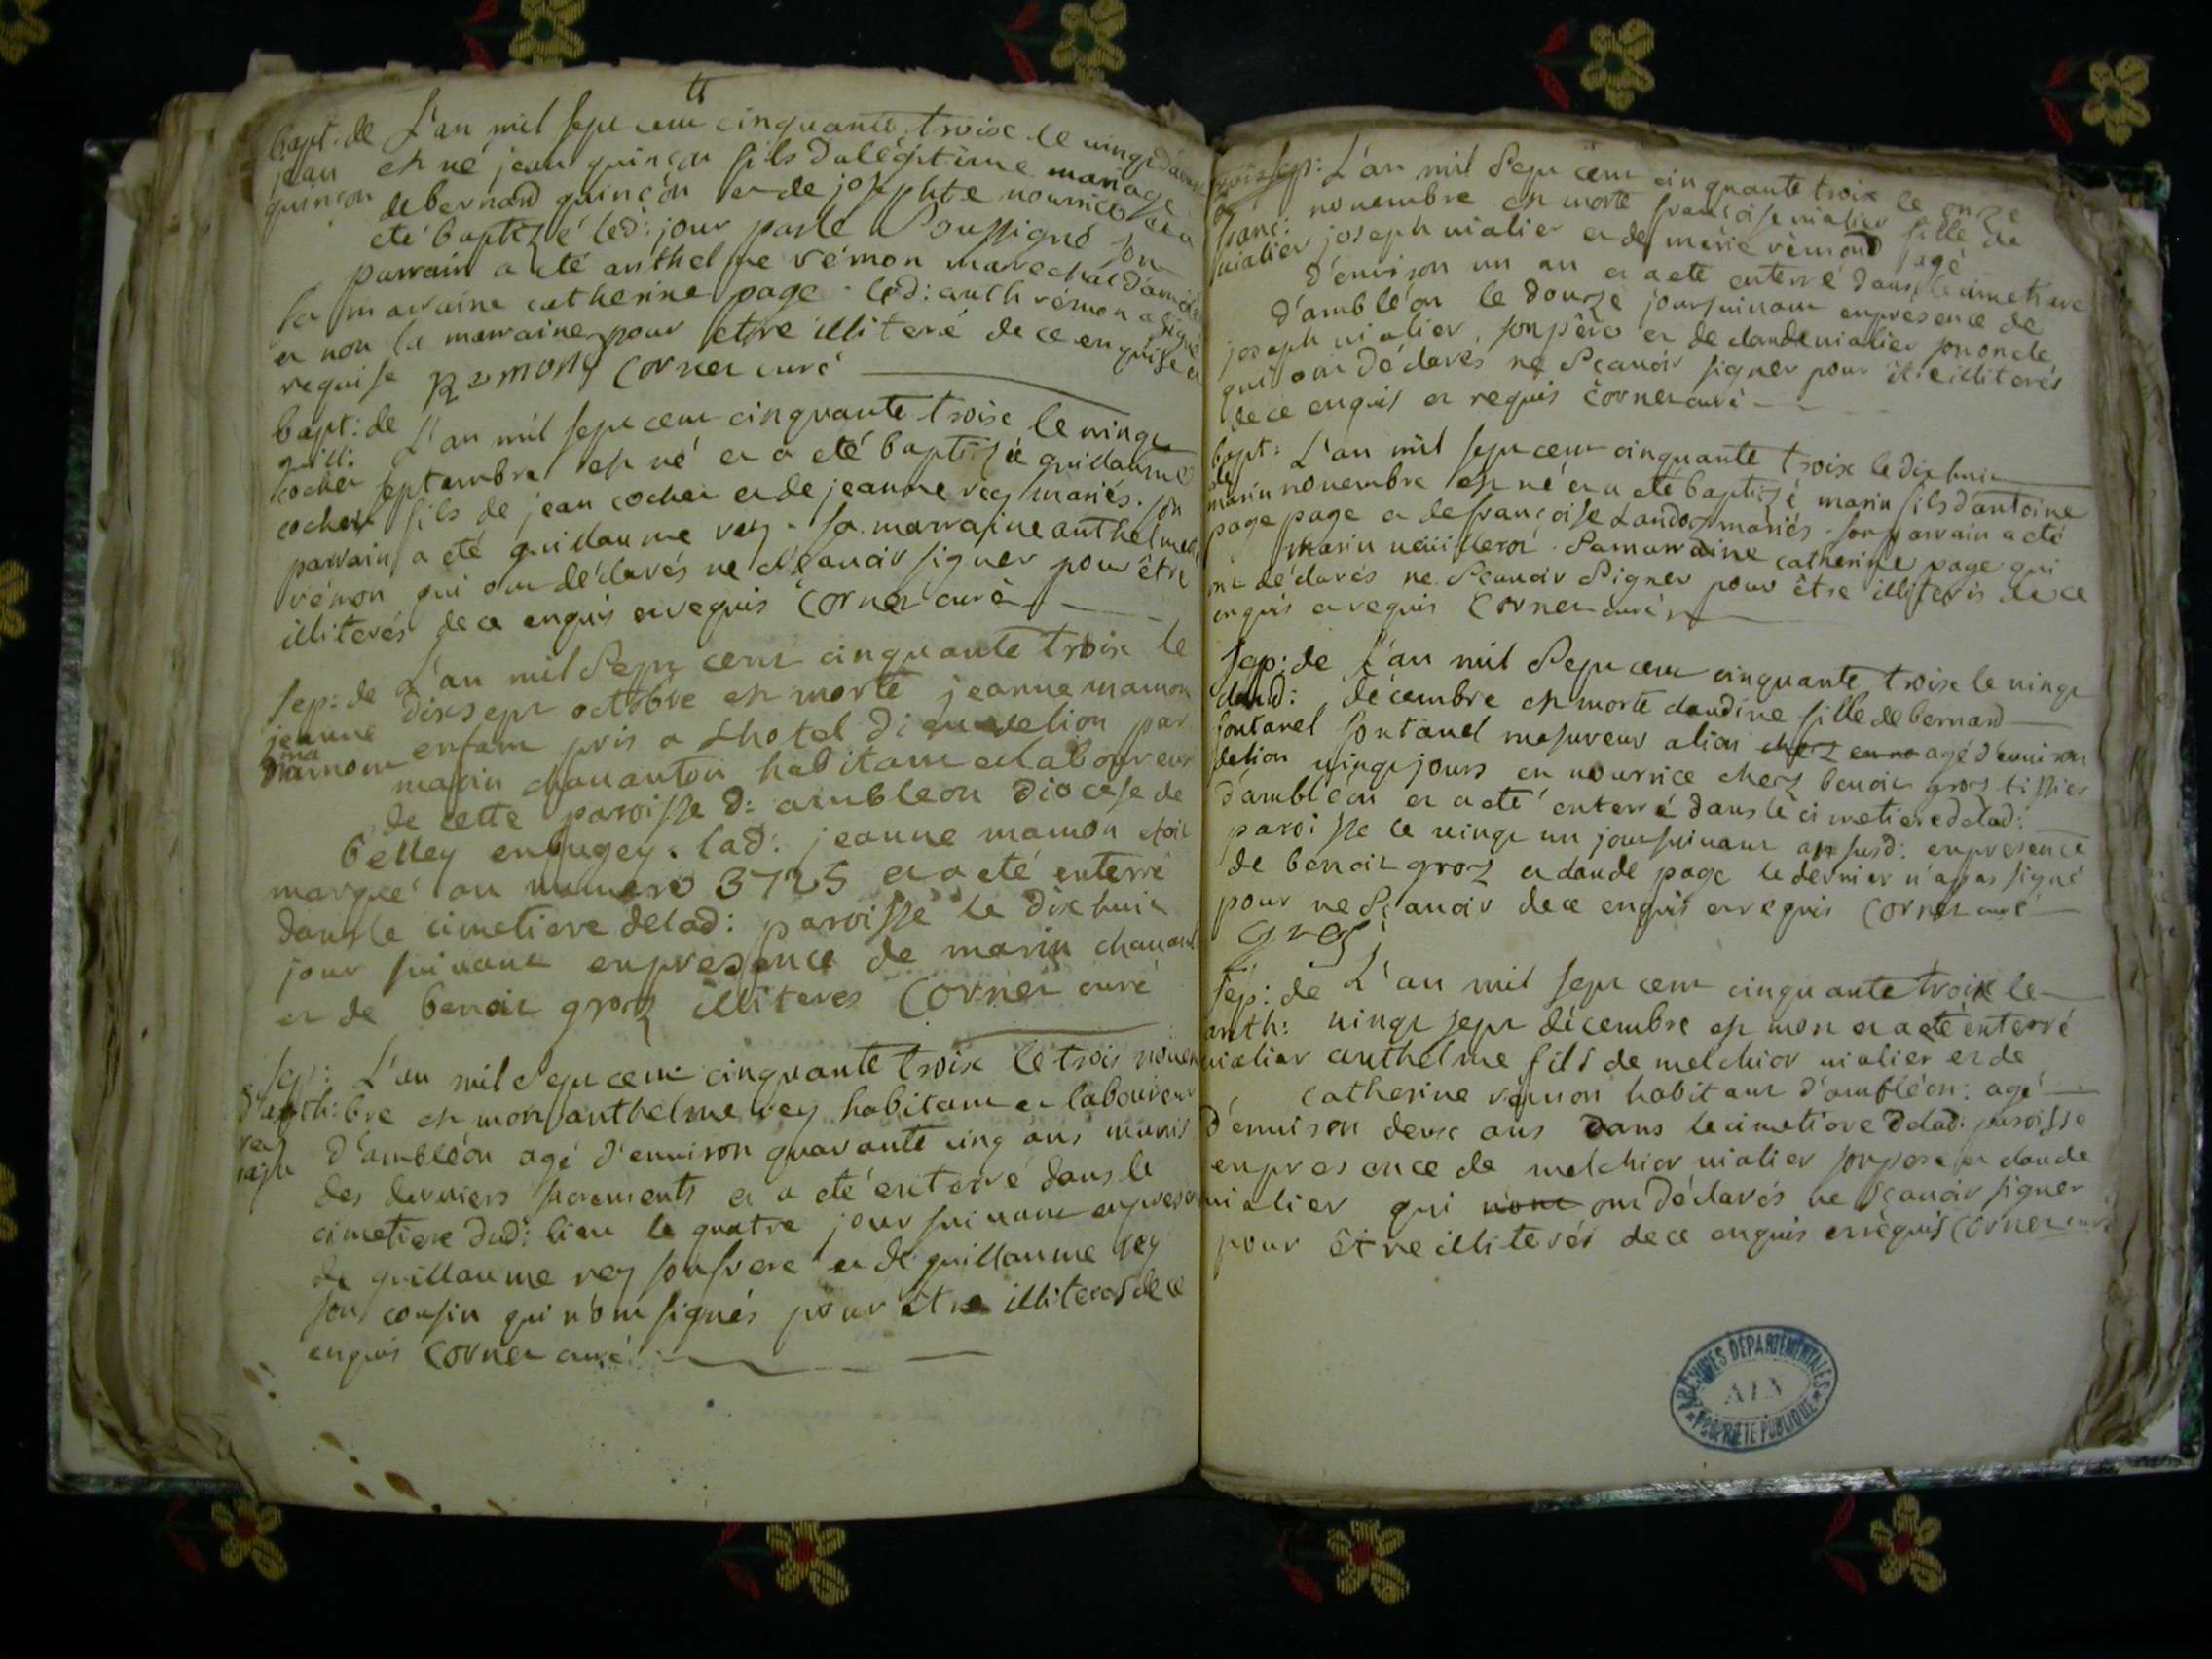 bapt. de L'an mil sept cent cinquante troix le vingt d'aoust
jean est né jean quinçon fils da légitime mariage
quinson de bernard quinçon et de josephte nourrice et a
eté baptizé led: jour par le Soussigné son
parrain a eté anthelme rémon marechal d'amb
sa marraine catherine page . led: anth rémon a signé
et non la marraine pour etre illiteré de ce enquise et
requise Remon Cornet curé
bapt: de L'an mil sept cent cinquante troix le vingt
guill: septembre est né et a eté baptizé guillaume
cochet
cochet fils de jean cochet et de jeanne rey mariés . son
parrain a eté guillaume rey . sa marraine anthelmette
rémon qui ont déclarés ne sçauoir signer pour être
illiterés de ce enquis et requis Cornet curé
sep: de L'an mil sept cent cinquante troix le
jeanne dixsept octobre est morte jeanne mamon
mamon enfant pris a Lhotel dieu de lion par
marin chauanton habitant et laboureur
de cette paroisse d: ambleon diocese de
belley en bugey . lad: jeanne mamon etoit
marqué au numero 3725 et a eté enterré
dans le cimetiere de lad: paroisse le dix huit
jour suiuant en presence de marin chauant
et de benoit groz illiteres Cornet curé
sep: L'an mil sept cent cinquante troix le trois nouem
d'anth: bre est mort anthelme rey habitant et laboureur
rey d'ambléon agé d'enuiron quarante cinq ans munis
des derniers sacrements et a eté enterré dans le
cimetiere dud: lieu le quatre jour suiuant en presen
de guillaume rey son frere et de guillaume rey
son cousin qui n'ont signés pour être illiteres de ce
enquis Cornet curé
sep: L'an mil sept cent cinquante troix le onze
de nouembre est morte françoise uialier fille de
franc:
uialier joseph uialier et de marie rémond agé
d'enuiron un an et a eté enterré dans le cimetiere
d'ambléon le douze jour suiuant en presence de
joseph uialier son père et de claude uialier son oncle
qui ont déclarés ne sçauoir signer pour être illiterés
de ce enquis et requis Cornet curé
bapt: L'an mil sept cent cinquante troix le dix huit
de
marin nouembre est né et a eté baptizé marin fils d'antoine
page page et de françoise Landoz mariés . son parrain a eté
marin . Sa marraine catherine page qui
ont déclarés ne sçauoir signer pour être illiterés de ce
enquis et requis Cornet curé
sep: de L'an mil sept cent cinquante troix le vingt
claud: décembre est morte claudine fille de bernard
fontanel fontanel a lion chez en no agé d'enuiron
de lion vingt jours en nourrice chez benoit groz tissier
d'ambléon et a eté enterré dans le cimetiere de lad:
paroisse le vingt un jour suiuant an susd: en presence
de benoit groz et claude page le dernier n'a pas signé
pour ne sçauoir de ce enquis et requis Cornet curé
groz
sép: de L'an mil sept cent cinquante troix le
anth: vingt sept décembre est mort et a eté enterré
uialier anthelme fils de melchior uialier et de
catherine remon habitant d'ambléon: agé
d'enuiron deux ans dans le cimetiere de lad: paroisse
en presence de melchior uialier son pere et claude
uialier qui n'ont ont déclarés ne sçauoir signer
pour être illiterés de ce enquis et requis Cornet curé
ARCHIVES DÉPARTEMENTALES
AIN
PROPRIÉTÉ PUBLIQUE